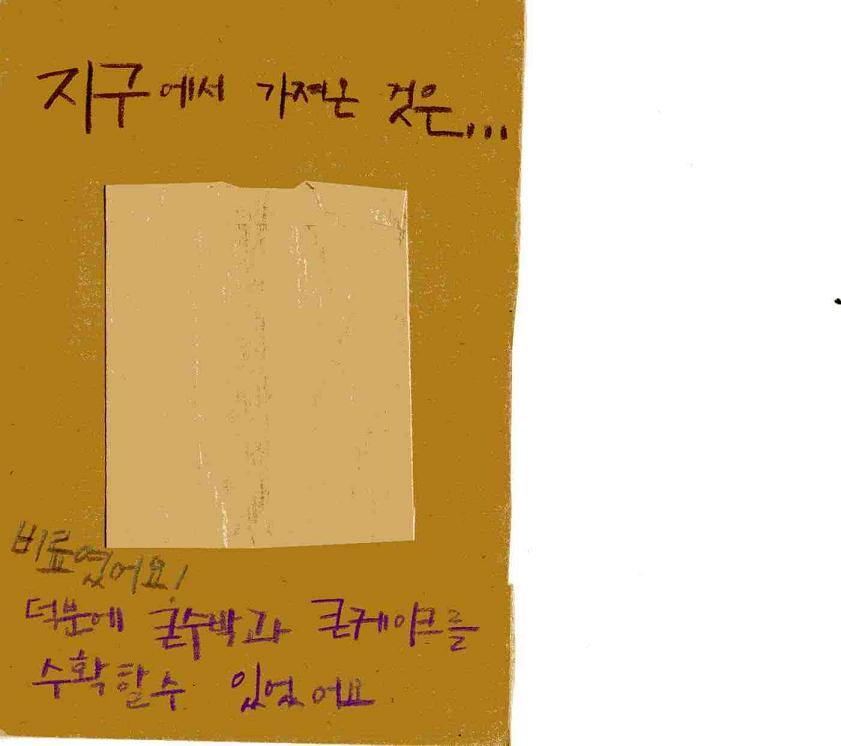 지구에서 가져온 것은...
비료였어요!
덕분에 큰수박과 큰케이크를
수확할수 있었어요